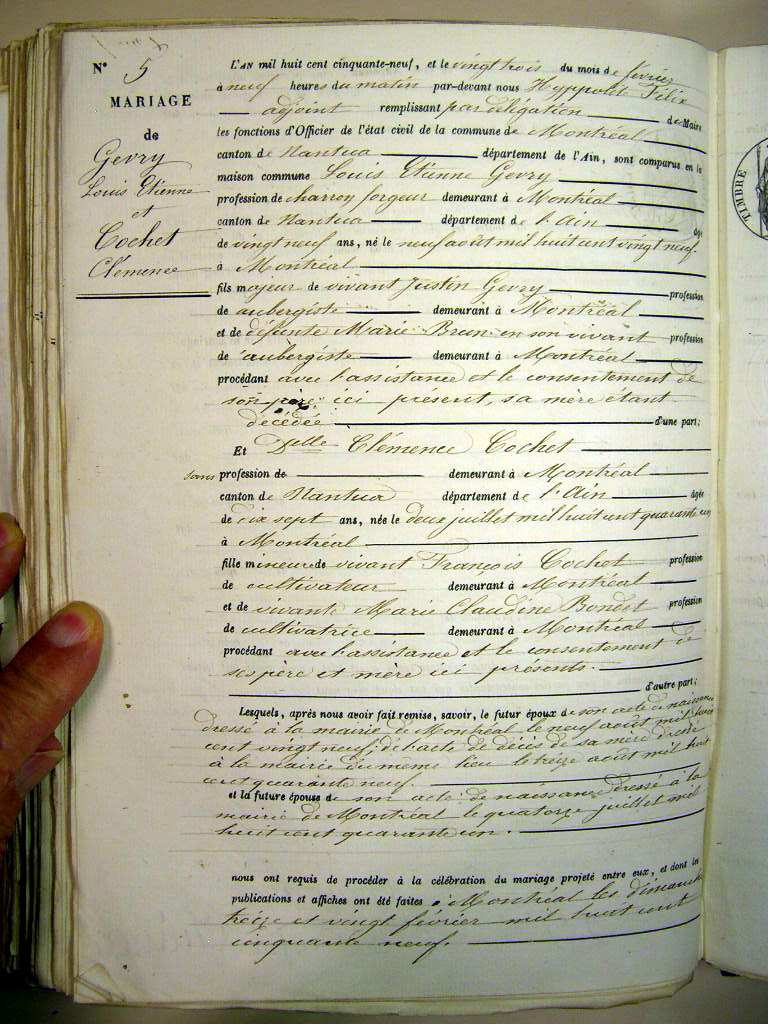 N° 5
MARIAGE
de
Gevry
Louis Etienne
et
Cochet
Clémence
L'AN mil huit cent cinquante-neuf, et le vingt trois du mois de février
à neuf heures du matin par-devant nous Hyppolite Félix
adjoint remplissant par délégation de Maire
les fonctions d'Officier de l'état civil de la commune de Montréal
canton de Nantua département de l'Ain, sont comparus en la
maison commune Louis Etienne Gevry
profession de charron forgeur demeurant à Montréal
canton de Nantua département de l'Ain âgé
de vingt neuf ans, né le neuf août mil huit cent vingt neuf
à Montréal
fils majeur de vivant Justin Gevry profession
de aubergiste demeurant à Montréal
et de défunte Marie Brun en son vivant profession
de aubergiste demeurant à Montréal
procédant avec l'assistance et le consentement de
son père ici présent, sa mère étant
décédée d'une part;
Et Delle Clémence Cochet
sans profession de demeurant à Montréal
canton de Nantua département de l'Ain âgée
de dix sept ans, née le deux juillet mil huit cent quarante un
à Montréal
fille mineure de vivant François Cochet profession
de cultivateur demeurant à Montréal
et de vivante Marie Claudine Bondet profession
de cultivatrice demeurant à Montréal
procédant avec l'assistance et le consentement de
ses père et mère ici présents.
d'autre part;
Lesquels, après nous avoir fait remise, savoir, le futur époux de son acte de naissance
dressé à la mairie de Montréal le neuf août mil huit
cent vingt neuf; de l'acte de décès de sa mère dressé
à la mairie du même lieu le treize août mil huit
cent quarante neuf.
et la future épouse de son acte de naissance dressé à la
mairie de Montréal le quatorze juillet mil
huit cent quarante un.
nous ont requis de procéder à la célébration du mariage projeté entre eux, et dont les
publications et affiches ont été faites à Montréal les dimanches
treize et vingt février mil huit cent
cinquante neuf.
TIMBRE